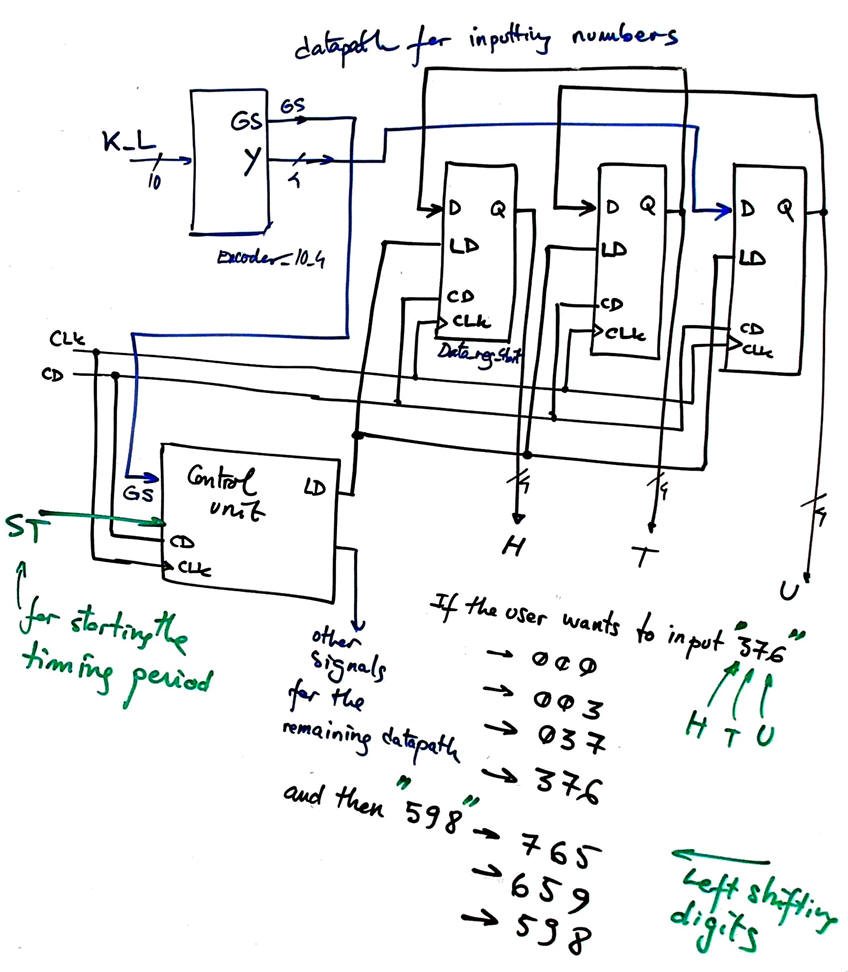 datapath for inputting numbers
GS
GS
K_L
Y
10
4
Encoder_10_4
D Q
LD
CD
CLK
D Q
LD
CD
CLK
D Q
LD
CD
CLK
CLK
CD
Control
unit
LD
GS
ST
CD
CLK
4
4
4
H
T
U
for starting the
timming period
other
signals
for the
remaining datapath
If the user wants to input "376"
→ 000
→ 003
→ 037
→ 376
H T U
and then "598"
→ 765
→ 659
→ 598
Left shifting
digits